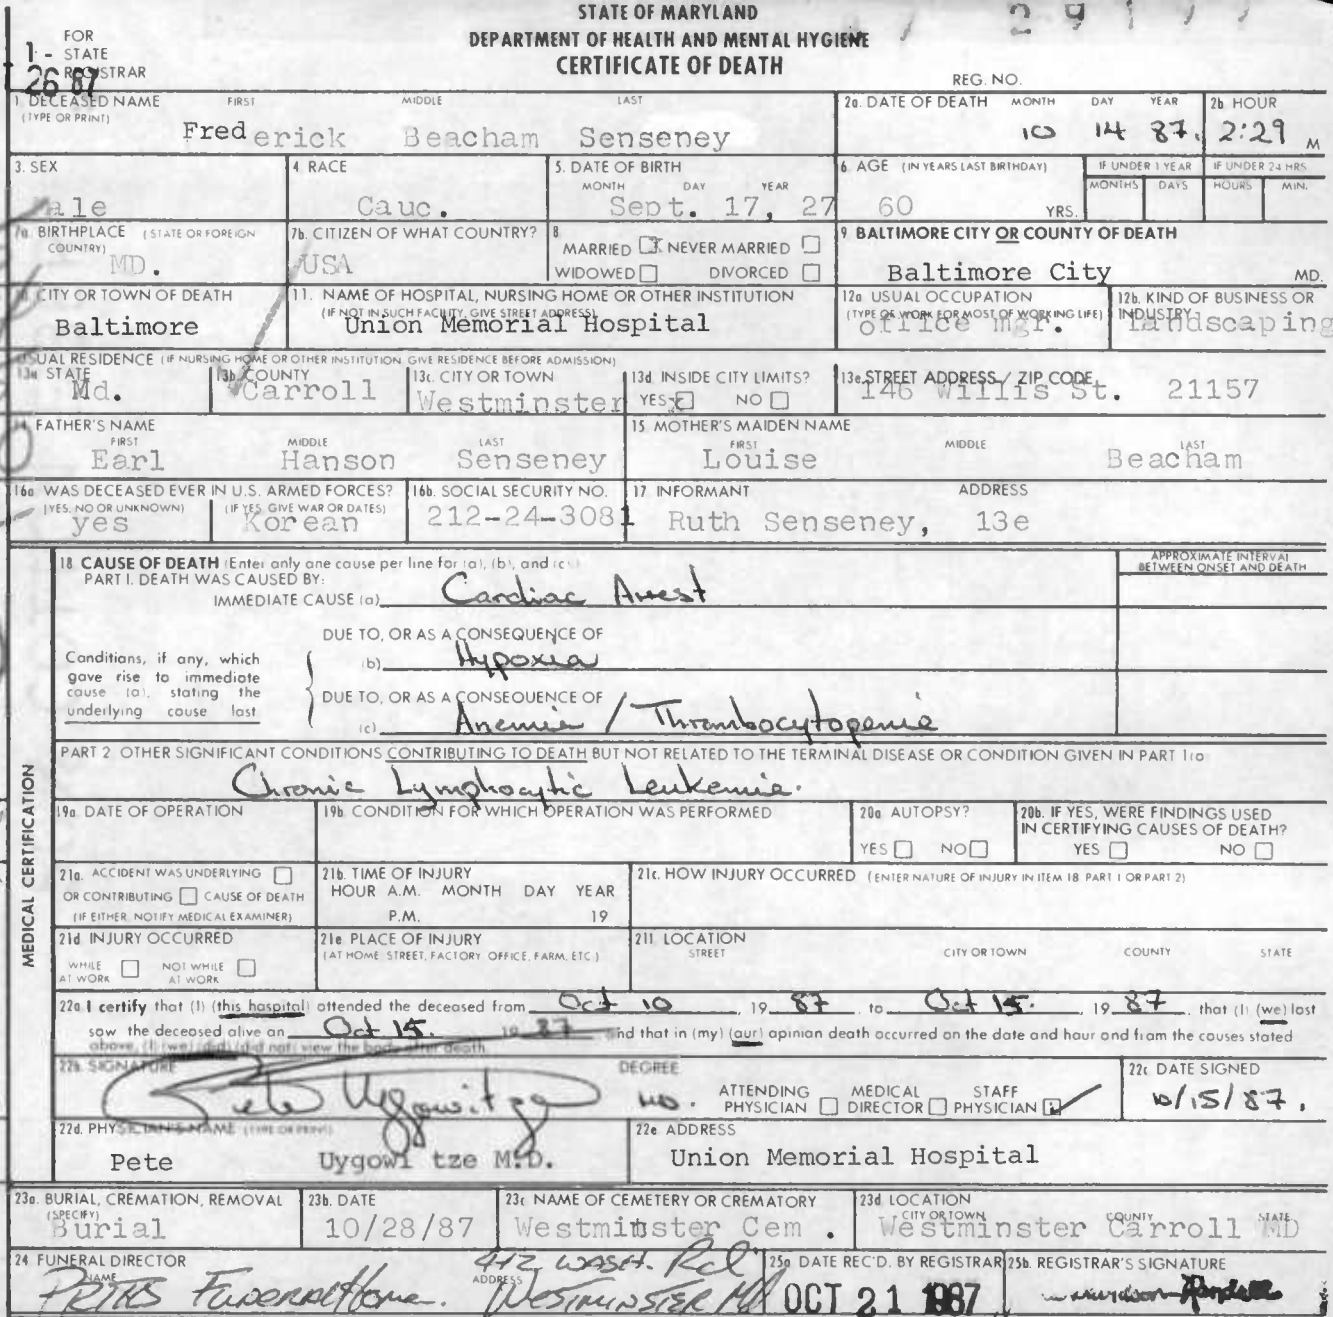 STATE OF MARYLAND
DEPARTMENT OF HEALTH AND MENTAL HYGIENE
CERTIFICATE OF DEATH
FOR
1 - STATE
REGISTRAR
26 87
REG. NO.
1. DECEASED NAME FIRST MIDDLE LAST
(TYPE OR PRINT)
Frederick Beacham Senseney
2a. DATE OF DEATH MONTH DAY YEAR
10 14 87.
2b HOUR
2:29 M
3. SEX
ale
4 RACE
Cauc.
5. DATE OF BIRTH
MONTH DAY YEAR
Sept. 17, 27
6 AGE (IN YEARS LAST BIRTHDAY)
60 YRS.
IF UNDER 1 YEAR
MONTHS DAYS
IF UNDER 24 HRS
HOURS MIN.
7a BIRTHPLACE (STATE OR FOREIGN
COUNTRY)
MD.
7b. CITIZEN OF WHAT COUNTRY?
USA
8
MARRIED X NEVER MARRIED
WIDOWED DIVORCED
9 BALTIMORE CITY OR COUNTY OF DEATH
Baltimore City MD.
CITY OR TOWN OF DEATH
Baltimore
11. NAME OF HOSPITAL, NURSING HOME OR OTHER INSTITUTION
(IF NOT IN SUCH FACILITY, GIVE STREET ADDRESS)
Union Memorial Hospital
12a USUAL OCCUPATION
(TYPE OF WORK FOR MOST OF WORKING LIFE)
office mgr.
12b. KIND OF BUSINESS OR
INDUSTRY
landscaping
USUAL RESIDENCE (IF NURSING HOME OR OTHER INSTITUTION GIVE RESIDENCE BEFORE ADMISSION)
13a STATE
Md.
13b COUNTY
Carroll
13c. CITY OR TOWN
Westminster
13d INSIDE CITY LIMITS?
YES X NO
13e STREET ADDRESS / ZIP CODE
146 Willis St. 21157
FATHER'S NAME
FIRST MIDDLE LAST
Earl Hanson Senseney
15 MOTHER'S MAIDEN NAME
FIRST MIDDLE LAST
Louise Beacham
16a WAS DECEASED EVER IN U.S. ARMED FORCES?
(YES, NO OR UNKNOWN) (IF YES, GIVE WAR OR DATES)
yes Korean
16b. SOCIAL SECURITY NO.
212-24-3081
17 INFORMANT ADDRESS
Ruth Senseney, 13e
MEDICAL CERTIFICATION
18 CAUSE OF DEATH (Enter only one cause per line for (a), (b), and (c)
PART I. DEATH WAS CAUSED BY:
IMMEDIATE CAUSE (a) Cardiac Arrest
APPROXIMATE INTERVAL
BETWEEN ONSET AND DEATH
Conditions, if any, which
gave rise to immediate
cause (a), stating the
underlying cause last
DUE TO, OR AS A CONSEQUENCE OF
(b) Hypoxia
DUE TO, OR AS A CONSEQUENCE OF
(c) Anemia / Thrombocytopenia
PART 2 OTHER SIGNIFICANT CONDITIONS CONTRIBUTING TO DEATH BUT NOT RELATED TO THE TERMINAL DISEASE OR CONDITION GIVEN IN PART 1(a)
Chronic Lymphocytic Leukemia.
19a. DATE OF OPERATION
19b. CONDITION FOR WHICH OPERATION WAS PERFORMED
20a AUTOPSY?
YES NO
20b. IF YES, WERE FINDINGS USED
IN CERTIFYING CAUSES OF DEATH?
YES NO
21a. ACCIDENT WAS UNDERLYING
OR CONTRIBUTING CAUSE OF DEATH
(IF EITHER NOTIFY MEDICAL EXAMINER)
21b. TIME OF INJURY
HOUR A.M. MONTH DAY YEAR
P.M. 19
21c. HOW INJURY OCCURRED (ENTER NATURE OF INJURY IN ITEM 18 PART 1 OR PART 2)
21d INJURY OCCURRED
WHILE AT WORK NOT WHILE AT WORK
21e PLACE OF INJURY
(AT HOME STREET, FACTORY OFFICE, FARM, ETC)
21f. LOCATION
STREET CITY OR TOWN COUNTY STATE
22a I certify that (I) (this hospital) attended the deceased from Oct 10, 19 87 to Oct 15. 19 87 that (I) (we) last
saw the deceased alive on Oct 15. 19 87 and that in (my) (our) opinion death occurred on the date and hour and from the causes stated
above, (I) (we) (did) (did not) view the body after death.
22b. SIGNATURE DEGREE
Pete Uygowitze MD.
ATTENDING PHYSICIAN MEDICAL DIRECTOR STAFF PHYSICIAN
22c DATE SIGNED
10/15/87.
22d. PHYSICIAN'S NAME (TYPE OR PRINT)
Pete Uygowi tze M.D.
22e ADDRESS
Union Memorial Hospital
23a. BURIAL, CREMATION, REMOVAL
(SPECIFY)
Burial
23b. DATE
10/28/87
23c NAME OF CEMETERY OR CREMATORY
Westminster Cem .
23d LOCATION
CITY OR TOWN COUNTY STATE
Westminster Carroll MD
24 FUNERAL DIRECTOR
NAME ADDRESS
PRITTS Funeral Home. 412 WASH. Rd WESTMINSTER Md
25a DATE REC'D. BY REGISTRAR
OCT 21 1987
25b. REGISTRAR'S SIGNATURE